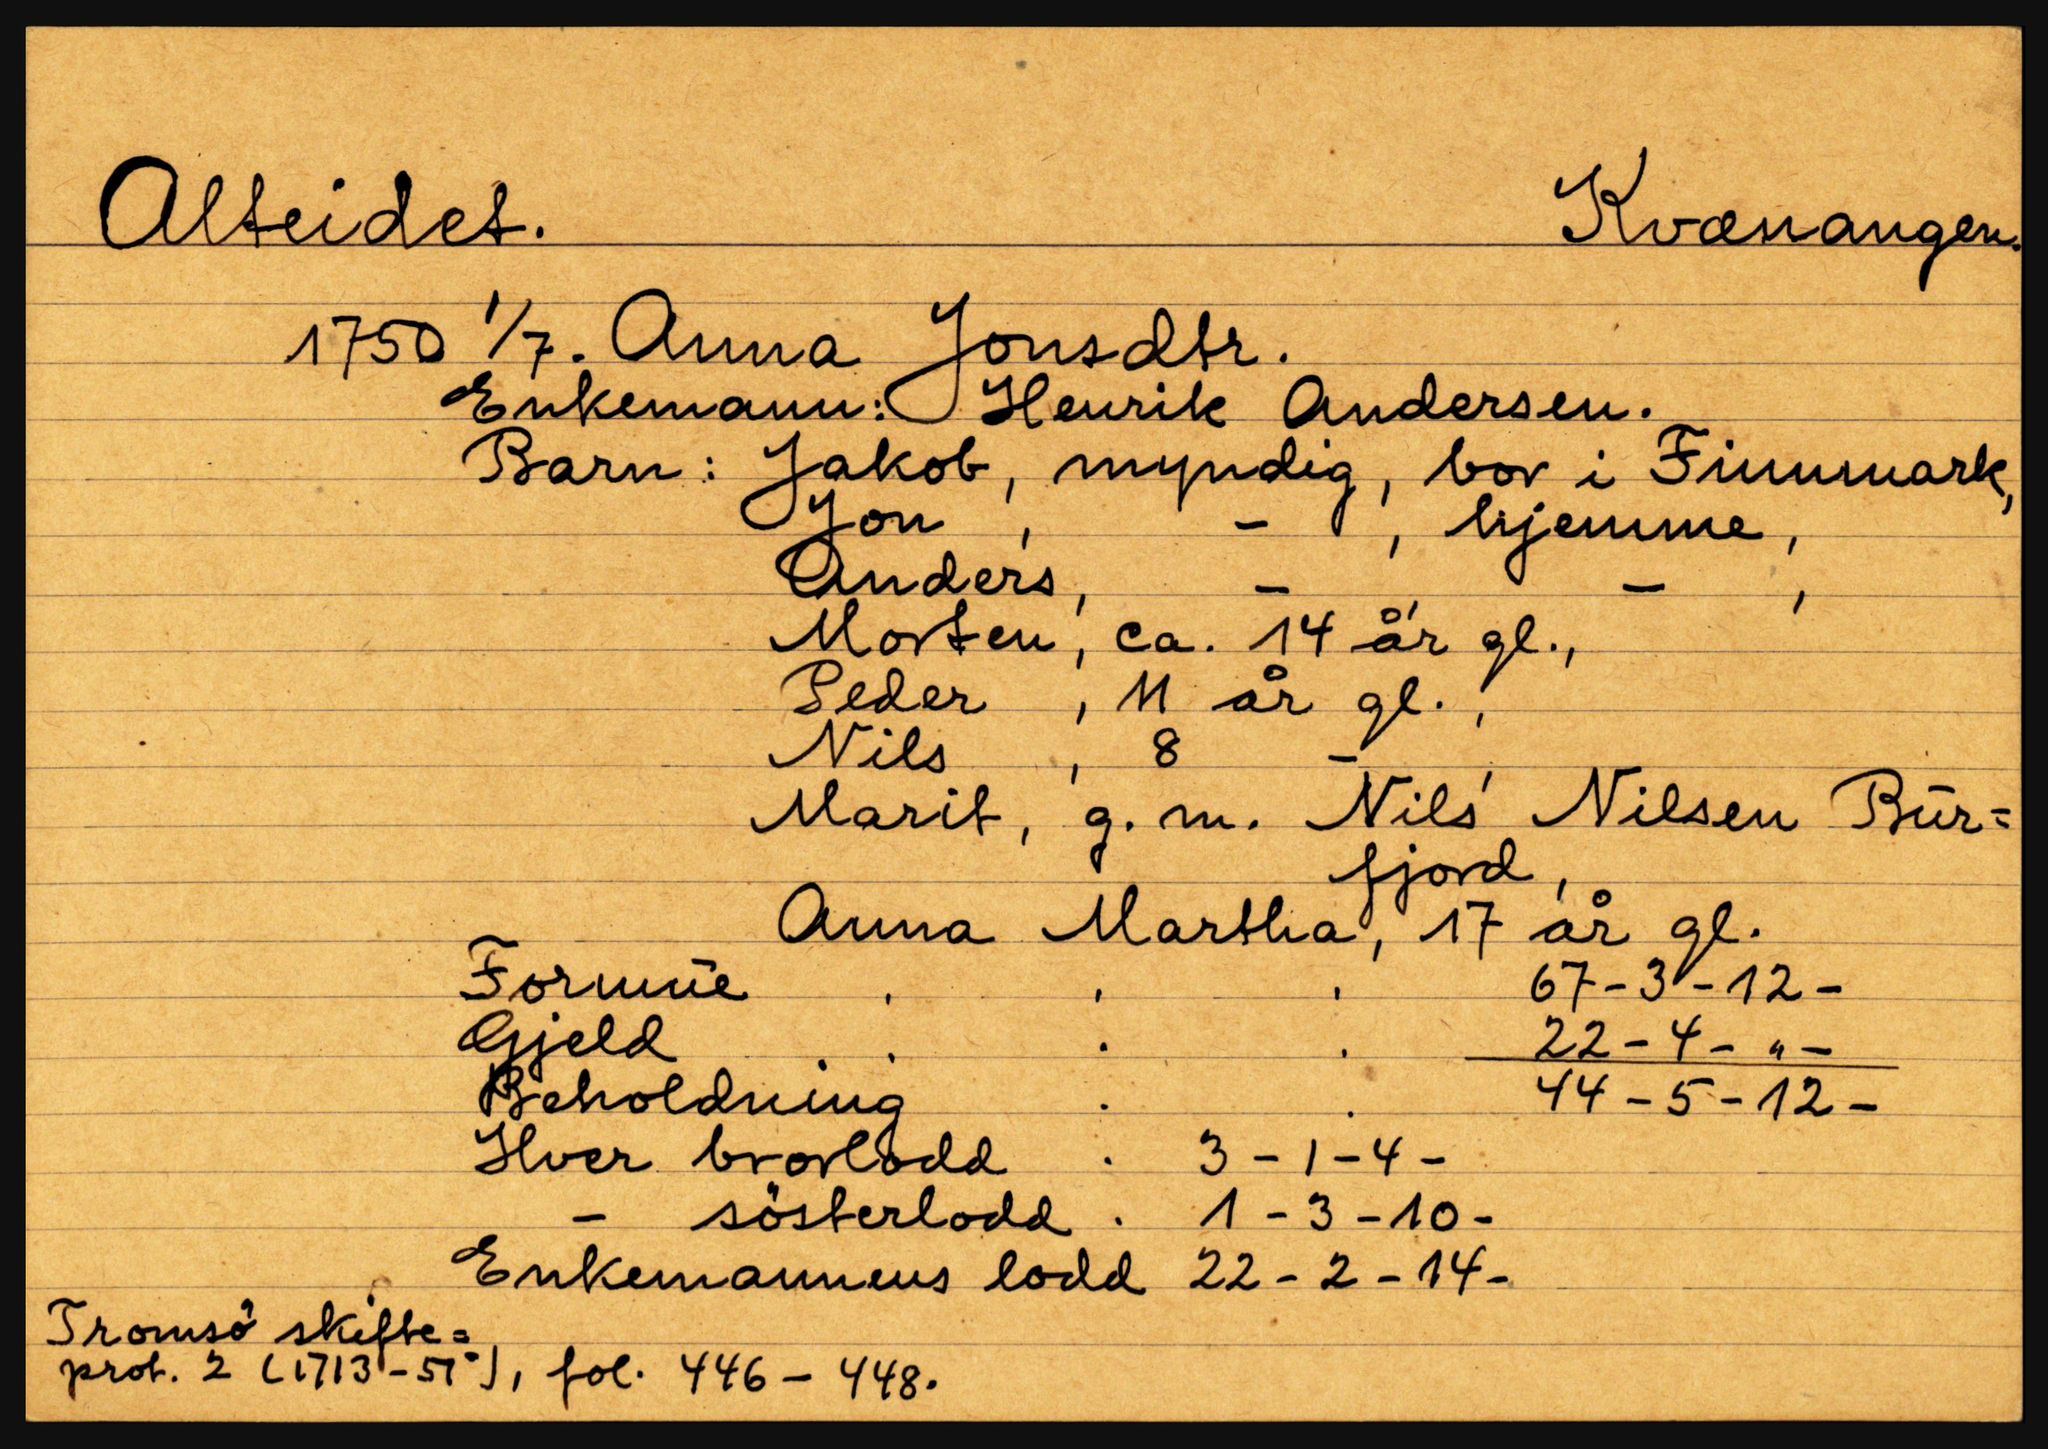 Alteidet. Kvænangen.
1750 1/7. Anna Jonsdtr.
Enkemann: Henrik Andersen.
Barn: Jakob, myndig, bor i Finnmark,
Jon, - , hjemme,
Anders, - - ,
Morten, ca. 14 år gl.,
Peder, 11 år gl.,
Nils, 8 - ,
Marit, g. m. Nils Nilsen Bur=
fjord,
Anna Martha, 17 år gl.
Formue . . . 67-3-12-
Gjeld . . . 22-4-"-
Beholdning . . 44-5-12-
Hver brorlodd . 3-1-4-
- sösterlodd . 1-3-10-
Enkemannens lodd 22-2-14-
Tromsö skifte=
prot. 2 (1713-51), fol. 446-448.